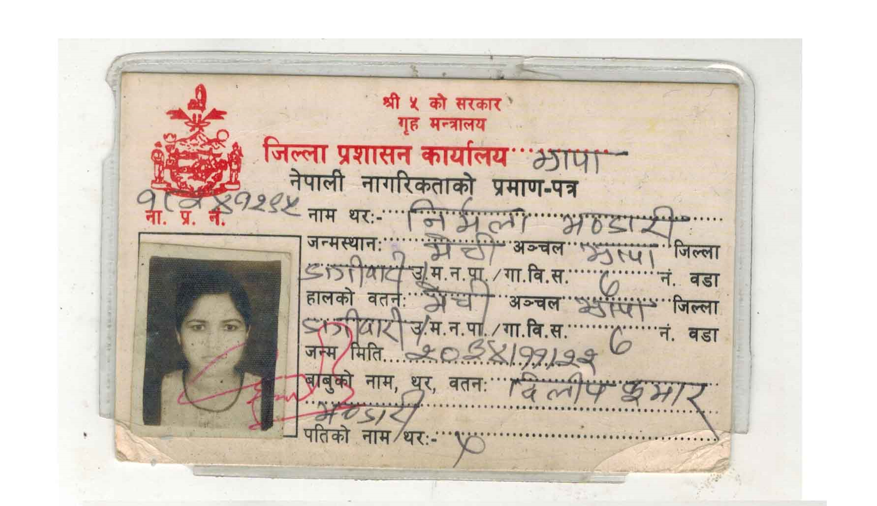 श्री ५ को सरकार
गृह मन्त्रालय
जिल्ला प्रशासन कार्यालय झापा
नेपाली नागरिकताको प्रमाण-पत्र
ना. प्र. नं.
नाम थर:- निर्मला भण्डारी
जन्मस्थान: मेची अञ्चल झापा जिल्ला
उ/म.न.पा./गा.वि.स. ७ नं. वडा
हालको वतन: मेची अञ्चल झापा जिल्ला
उ/म.न.पा./गा.वि.स. ७ नं. वडा
जन्म मिति
बाबुको नाम, थर, वतन: दिलीप कुमार
भण्डारी
पतिको नाम थर:-